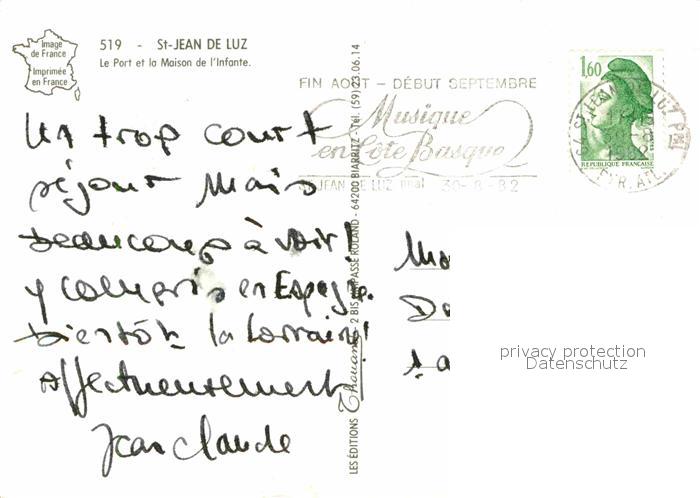 Image
de France
Imprimée
en France
519 - St-JEAN DE LUZ
Le Port et la Maison de l'Infante.
FIN AOUT - DÉBUT SEPTEMBRE
Musique
en Côte Basque
St JEAN DE LUZ ppal 30-8-82
1,60
REPUBLIQUE FRANÇAISE
Un trop court
séjour Mais
beaucoup à voir!
y compris en Espagne.
bientôt la Lorraine!
Affectueusement
Jean Claude
LES ÉDITIONS Thouand - 2 BIS IMPASSE ROLAND - 64200 BIARRITZ - Tél. (59) 23.06.14
privacy protection
Datenschutz